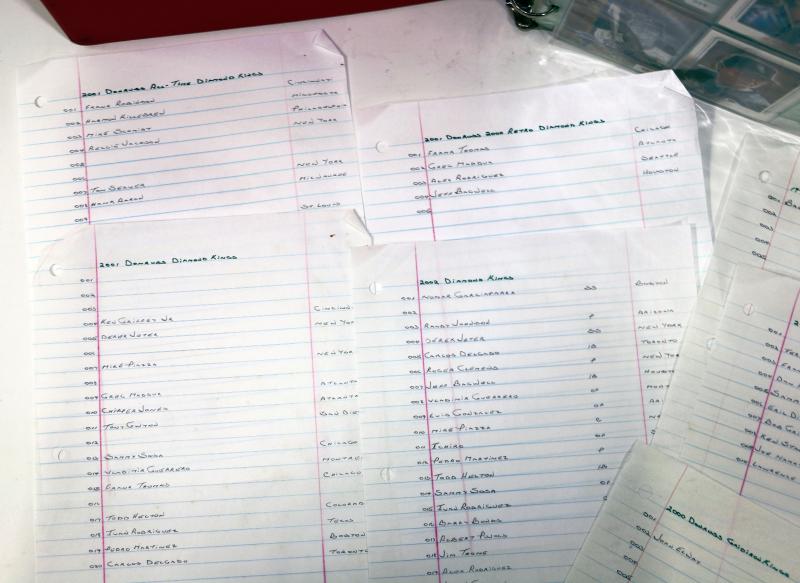 2001 Donruss All-Time Diamond Kings
001 Frank Robinson Cincinnati
002 Harmon Killebrew Minnesota
003 Mike Schmidt Philadelphia
004 Reggie Jackson New York
005
006
007 Tom Seaver New York
008 Hank Aaron Milwaukee
009 St. Louis
2001 Donruss 2000 Retro Diamond Kings
001 Frank Thomas Chicago
002 Greg Maddux Atlanta
003 Alex Rodriguez Seattle
004 Jeff Bagwell Houston
005
2001 Donruss Diamond Kings
001
002
003
004 Ken Griffey Jr
005 Derek Jeter New Yor
006
007 Mike Piazza New Yor
008
009 Greg Maddux Atlant
010 Chipper Jones Atlant
011 Tony Gwynn San Die
012
013 Sammy Sosa Chicago
014 Vladimir Guerrero Montre
015 Frank Thomas Chicago
016
017 Todd Helton Colorad
018 Ivan Rodriguez Texas
019 Pedro Martinez Boston
020 Carlos Delgado Toronto
2002 Diamond Kings
001 Nomar Garciaparra SS Boston
002
003 Randy Johnson P Arizona
004 Derek Jeter SS New York
005 Carlos Delgado 1B Toronto
006 Roger Clemens P New Yo
007 Jeff Bagwell 1B Houst
008 Vladimir Guerrero OF Mont
009 Luis Gonzalez OF
010 Mike Piazza C
011 Ichiro OF
012 Pedro Martinez P
013 Todd Helton 1B
014 Sammy Sosa OF
015 Ivan Rodriguez
016 Barry Bonds
017 Albert Pujols
018 Jim Thome
019 Alex Rodriguez
2000 Donruss Gridiron Kings
001
002 John Elway
003